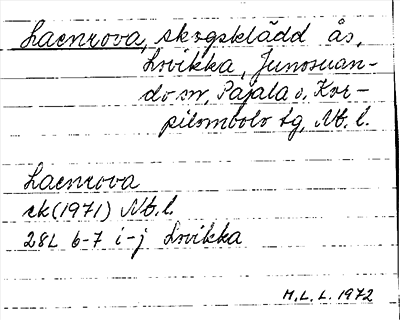 Laenrova, skogsklädd ås,
Lovikka, Junosuan-
do sn, Pajala o. Kor-
pilombolo tg, Nb. l.
Laenrova
ek (1971) Nb. l.
28L 6-7 i-j Lovikka
H. L. L. 1972